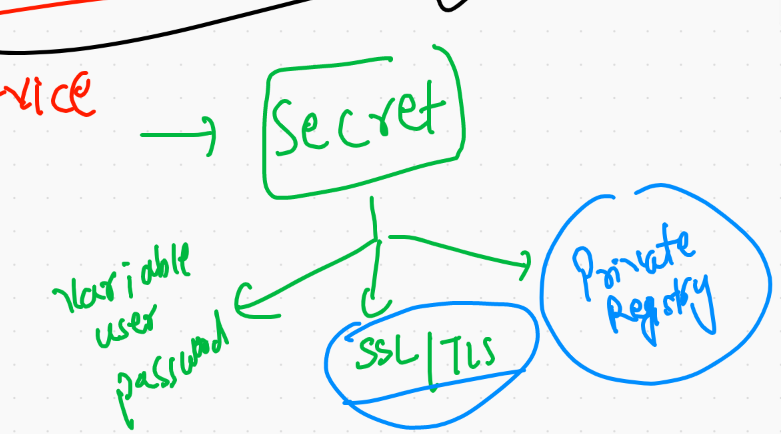 vice
Secret
Variable
user
password
SSL|TLS
Private
Registry